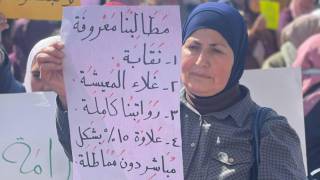 مطالبنا معروفة
١- نقابة
٢- غلاء المعيشة
٣- رواتبنا كاملة.
٤- علاوة ١٥٪ بشكل
مباشر دون مماطلة